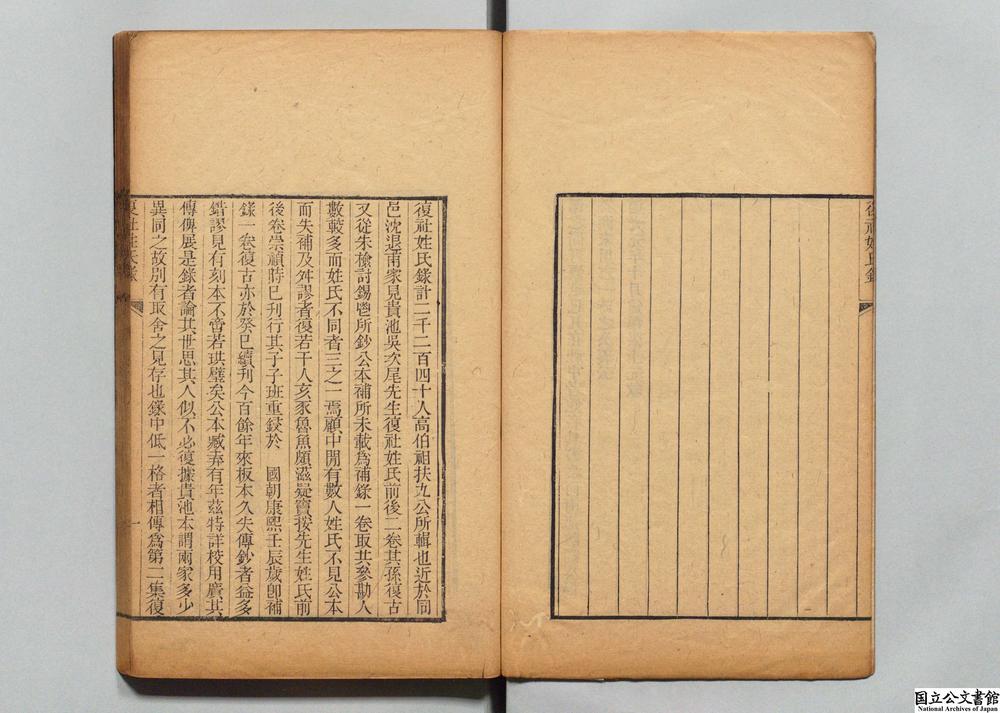 復社姓氏錄
復社姓氏錄計二千二百四十人高伯祖扶九公所輯也近於同
邑沈退甫家見貴池吳次尾先生復社姓氏前後二卷其孫復古
又從朱檢討錫鬯所鈔公本補所未載爲補錄一卷取共參勘人
數較多而姓氏不同者三之一焉顧中閒有數人姓氏不見公本
而失補及舛謬者復若干人亥豕魯魚頗滋疑竇按先生姓氏前
後卷崇禎時已刊行其子子班重鋟於　國朝康熙壬辰歲卽補
錄一卷復古亦於癸巳續刊今百餘年來板本久失傳鈔者益多
錯謬見有刻本不啻若珙璧矣公本臧弆有年茲特詳校用廣其
傳俾展是錄者論其世思其人似不必復據貴池本謂兩家多少
異同之故別有取舍之見存也錄中低一格者相傳爲第二集復
復社姓氏錄
一
国立公文書館
National Archives of Japan